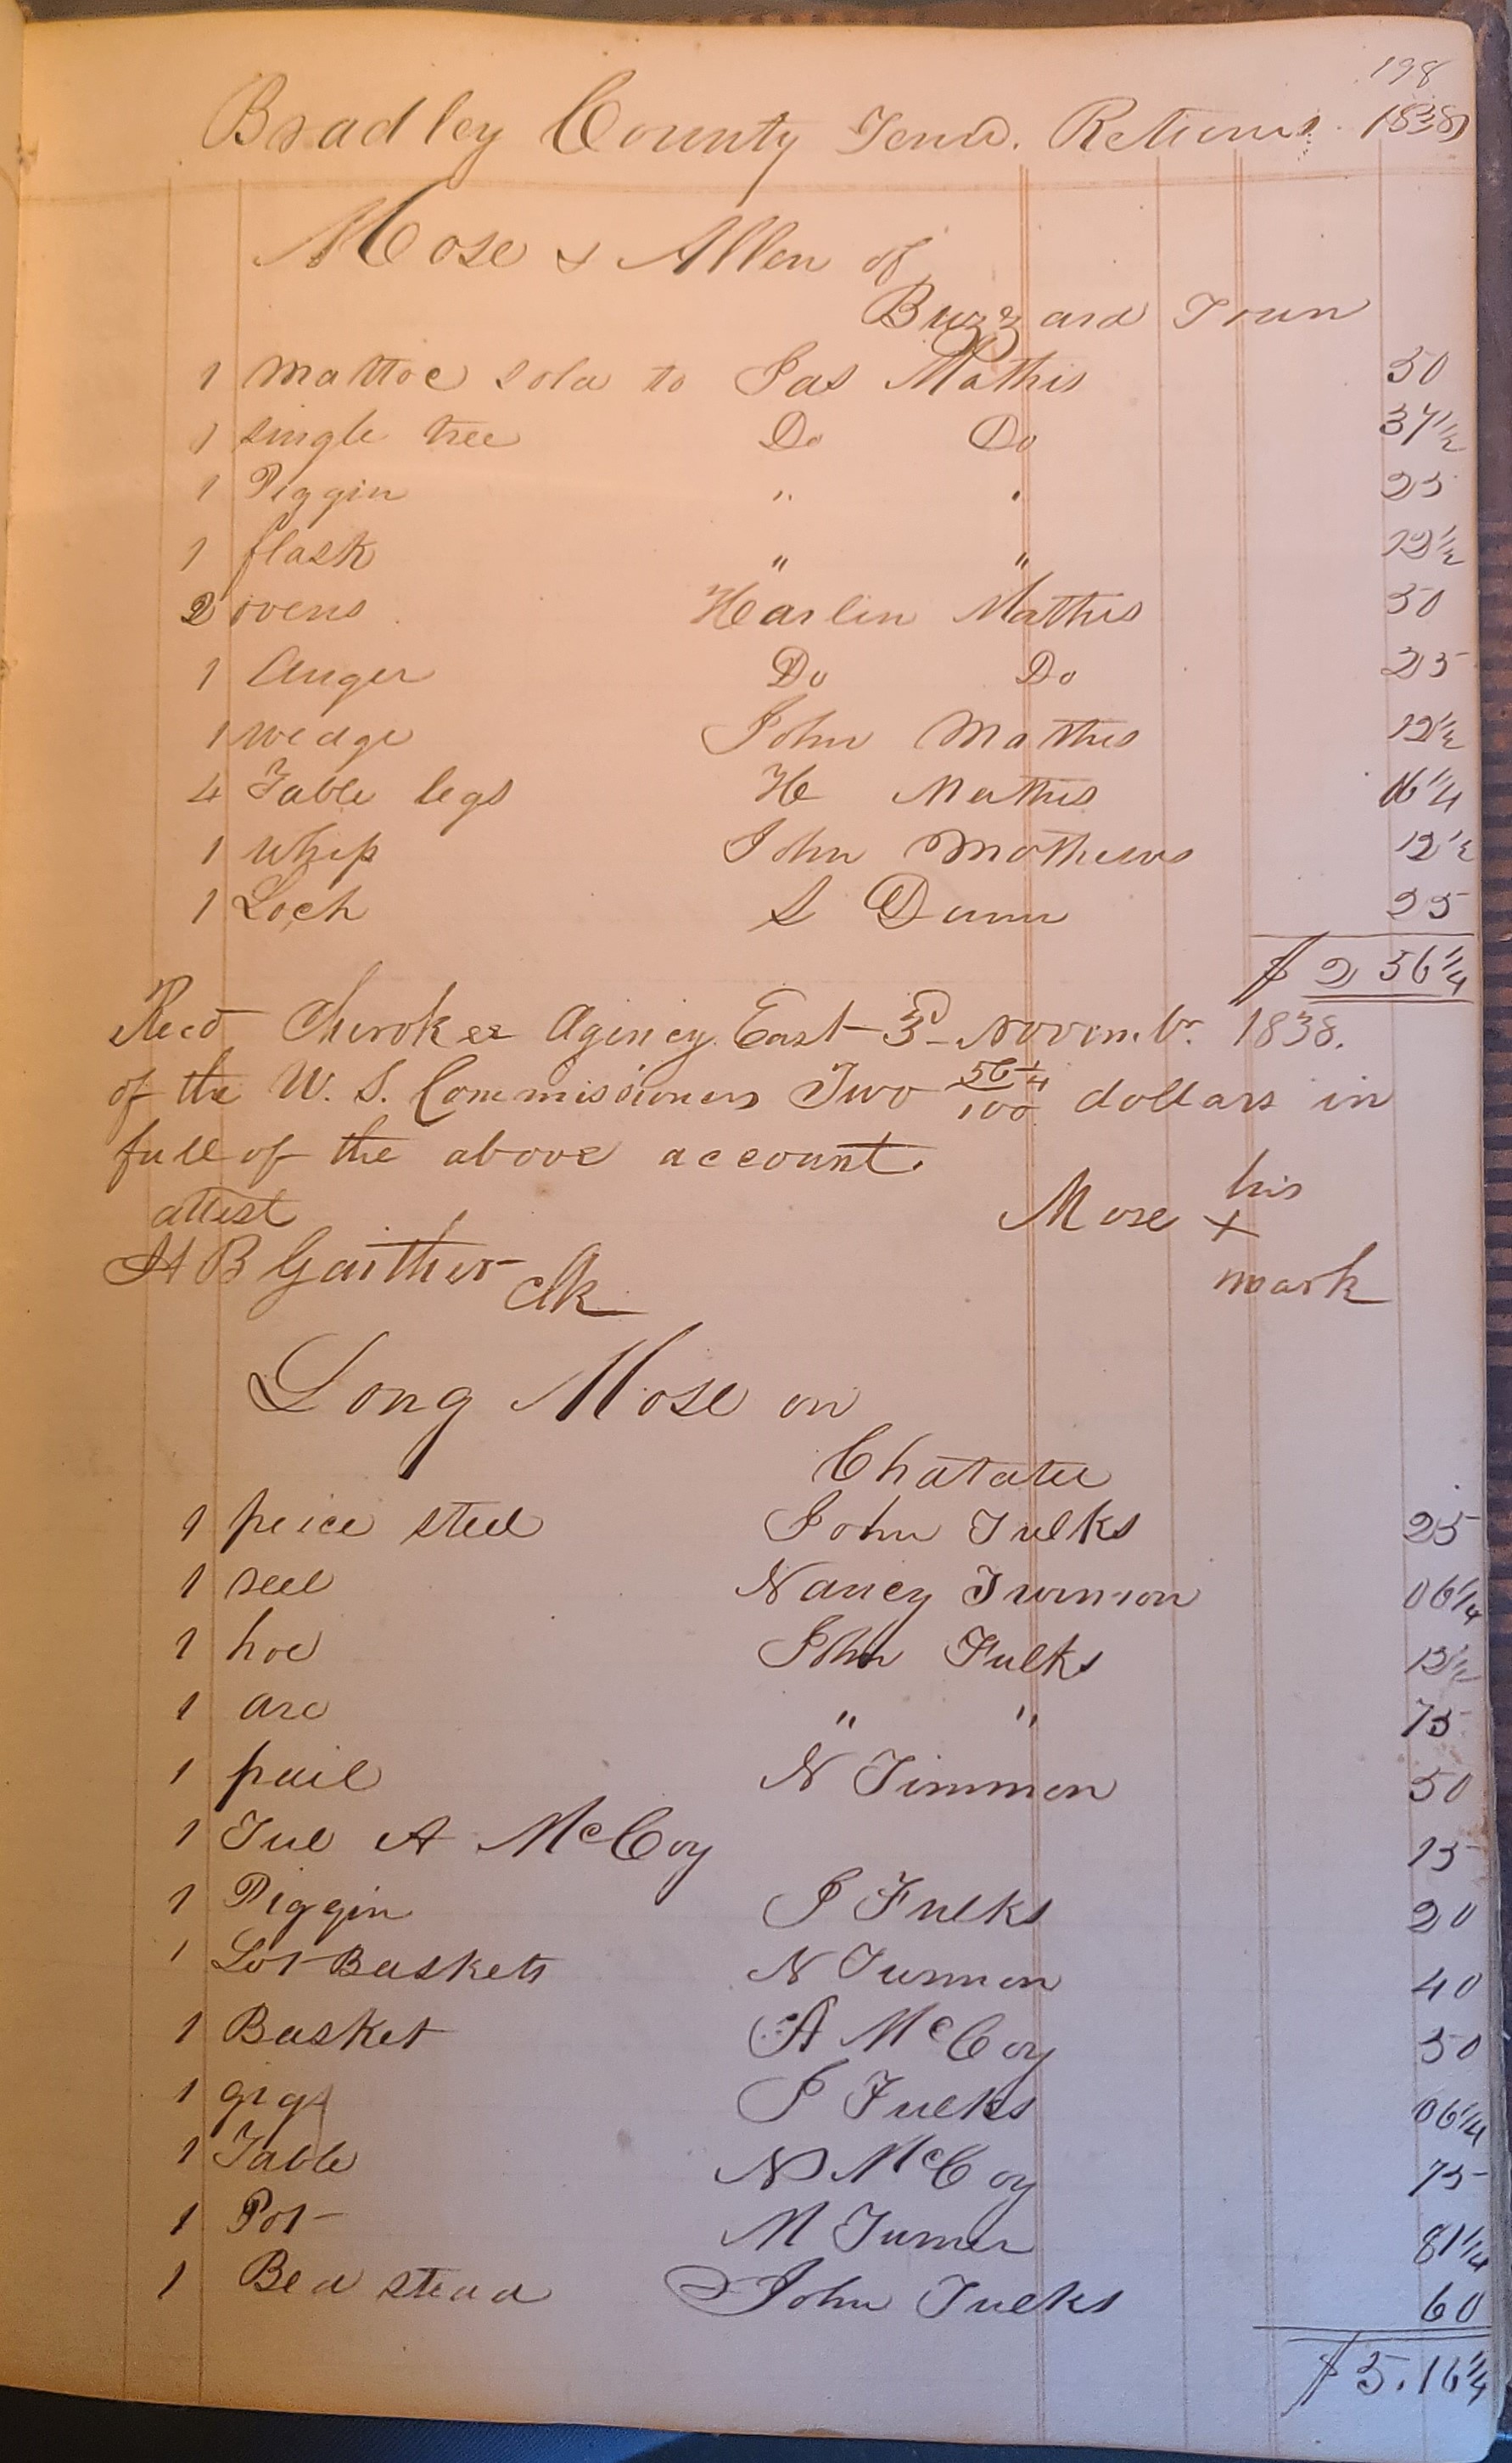 198
Bradley County Tenn. Returns. 1838
Mose & Allen of
Buzzard Town
1 Mattoc sold to Jas Mathis 50
1 single tree Do Do 37 1/2
1 Piggin " " 25
1 flask " " 12 1/2
2 ovens Harlin Mathis 50
1 Auger Do Do 25
1 wedge John Mathis 12 1/2
4 Table legs H Mathis 06 1/4
1 Whip John Mathews 12 1/2
1 Lock S Dunn 25
$ 2 56 1/4
Recd Cherokee Agency East 3d Novembr. 1838.
of the U. S. Commissioners Two 56 1/4/100 dollars in
full of the above account.
attest
Mose his x mark
H B Gaither Clk
Long Mose on
Chatatee
1 peice steel John Fulks 25
1 Nancy 06 1/4
1 hoe John Fulks 12 1/2
1 axe " " 75
1 pail N Timmon 50
1 A McCoy 15
1 Piggin J Fulks 20
1 Lot Baskets N 40
1 Basket A McCoy 50
1 gigs J Fulks 06 1/4
1 Table N McCoy 75
1 Pot M Turner 81 1/4
1 Bed stead John Fulks 60
$ 5.16 1/4